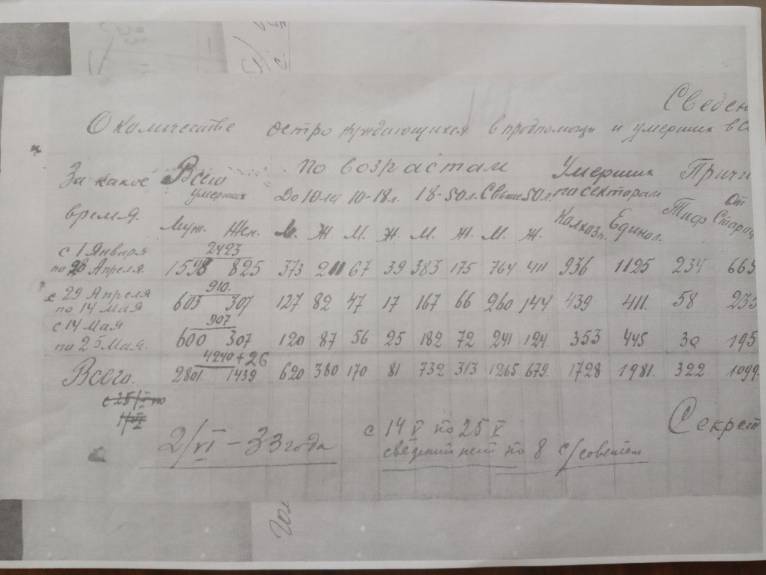 Сведен
О количестве остро нуждающихся в продпомощи и умерших в с
За какое время. Всего умерших По возрастам Умерших по секторам Причи
До 10 лет 10-18 л. 18-50 л. Свыше 50 л. От
Муж. Жен. М. Ж М. Ж. М. Ж. М. Ж. Колхозн. Единол. Тиф Старос
с 1 Января 2423
по 28 Апреля. 1598 825 373 211 67 39 383 175 764 411 936 1125 234 669
с 29 Апреля 910.
по 14 Мая 603 307 127 82 47 17 167 66 260 144 439 411. 58 235
с 14 Мая 907
по 25 Мая. 600 307 120 87 56 25 182 72 241 124 353 445 30 195
4240+26
Всего. 2801 1439 620 380 170 81 732 313 1265 679. 1728 1981. 322 1099
с 25/V по
1/VI
2/VI – 33 года
с 14 V по 25 V
сведений нет по 8 с/советам
Секрет